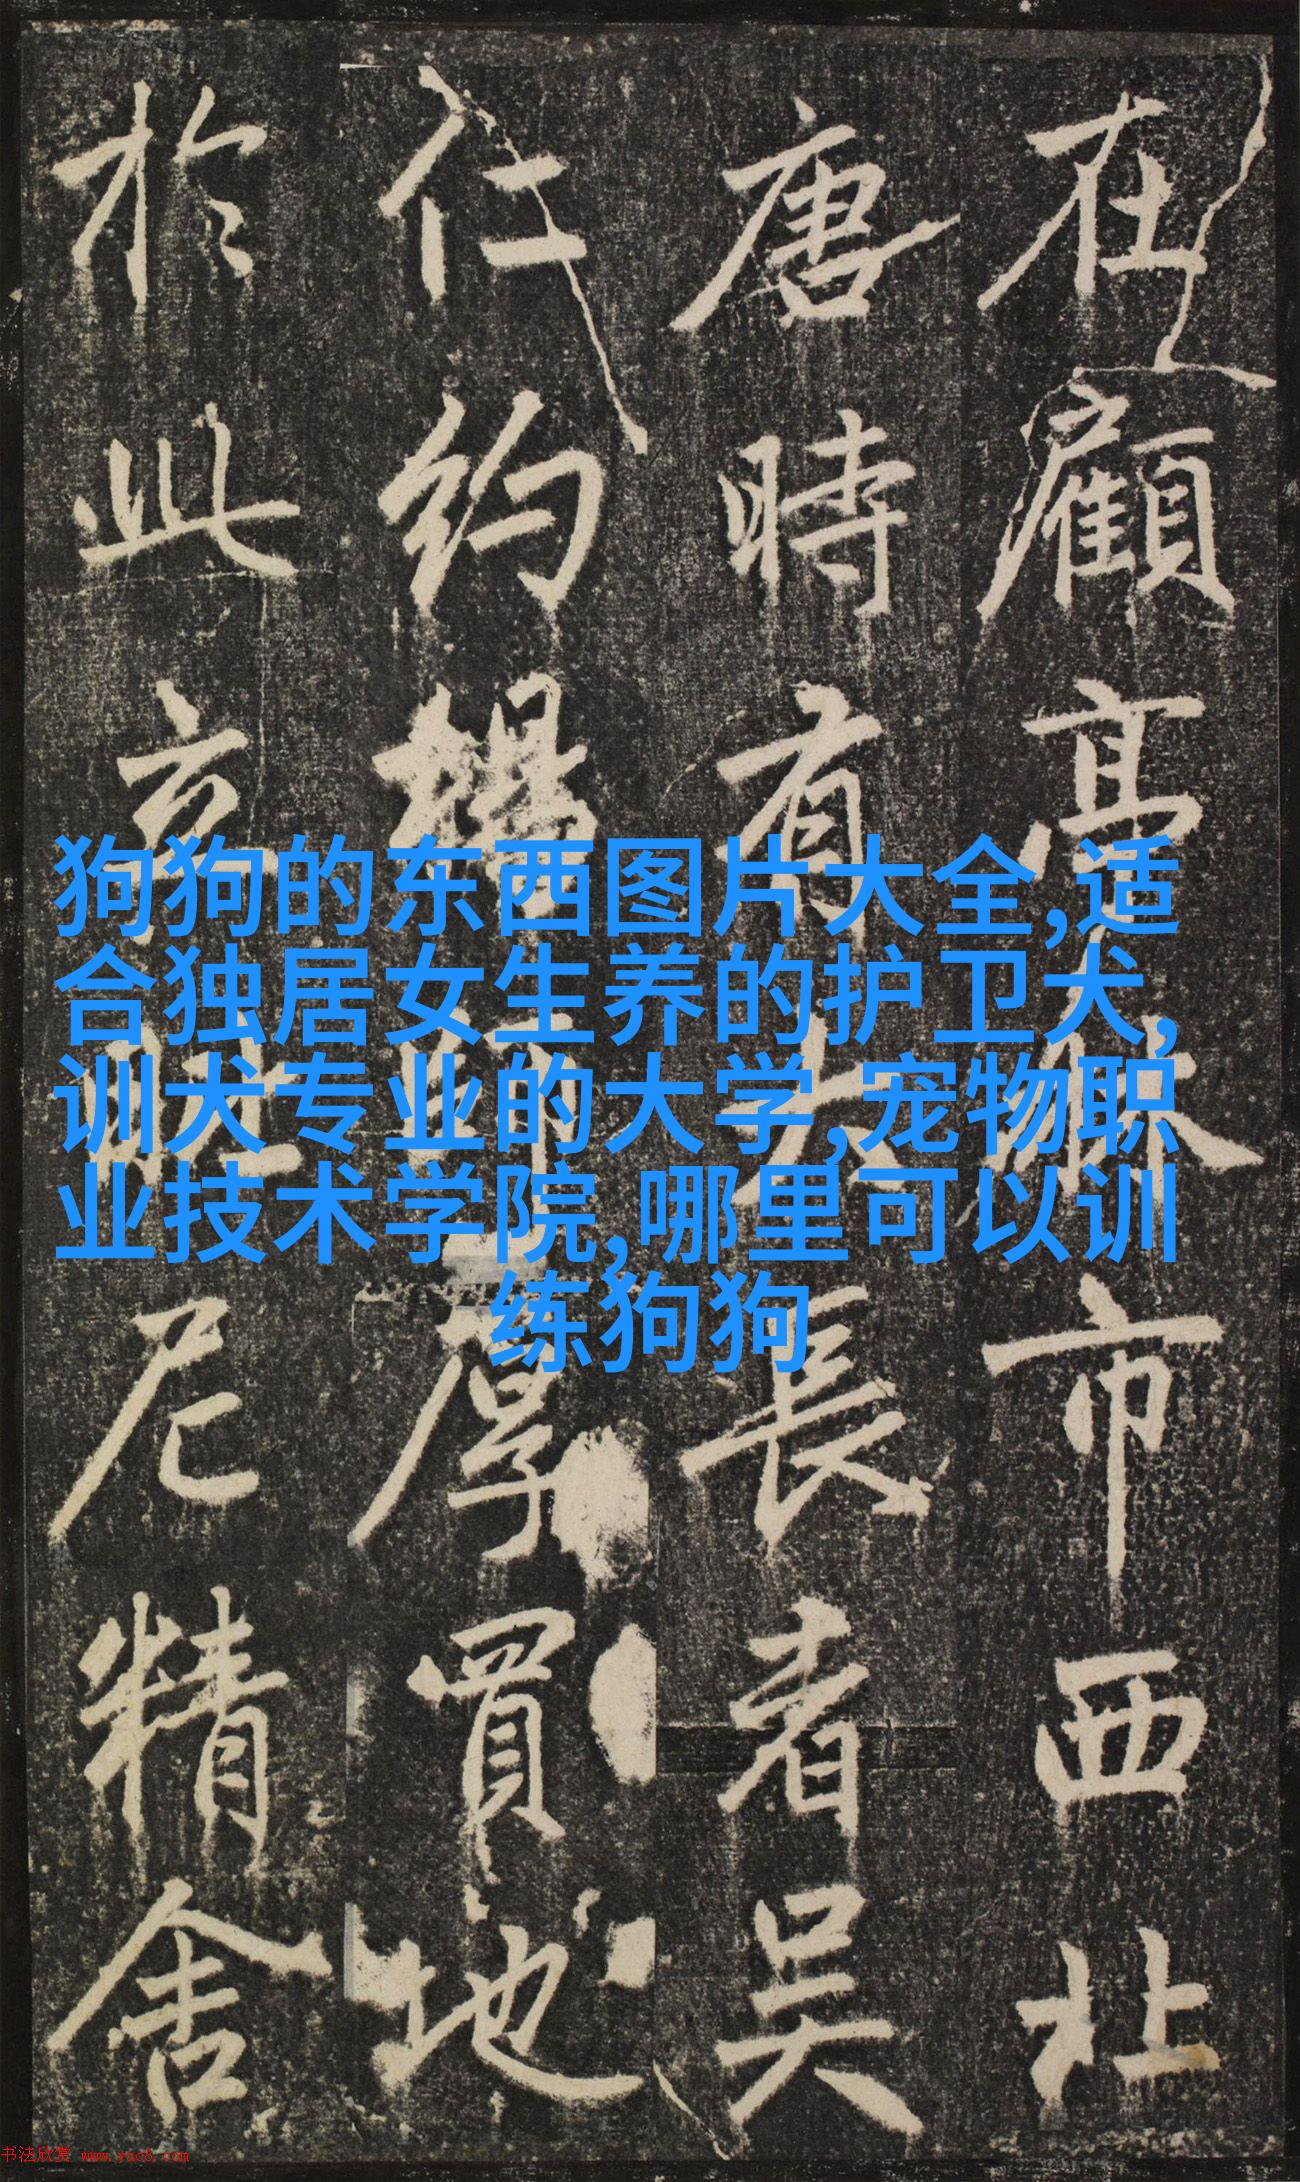 在顧亭林市西北
唐時有大長者吳
仁約厚買地
於此尼精舍
狗狗的东西图片大全,适
合独居女生养的护卫犬,
训犬专业的大学,宠物职
业技术学院,哪里可以训
练狗狗
书法欣赏 www.yac8.com